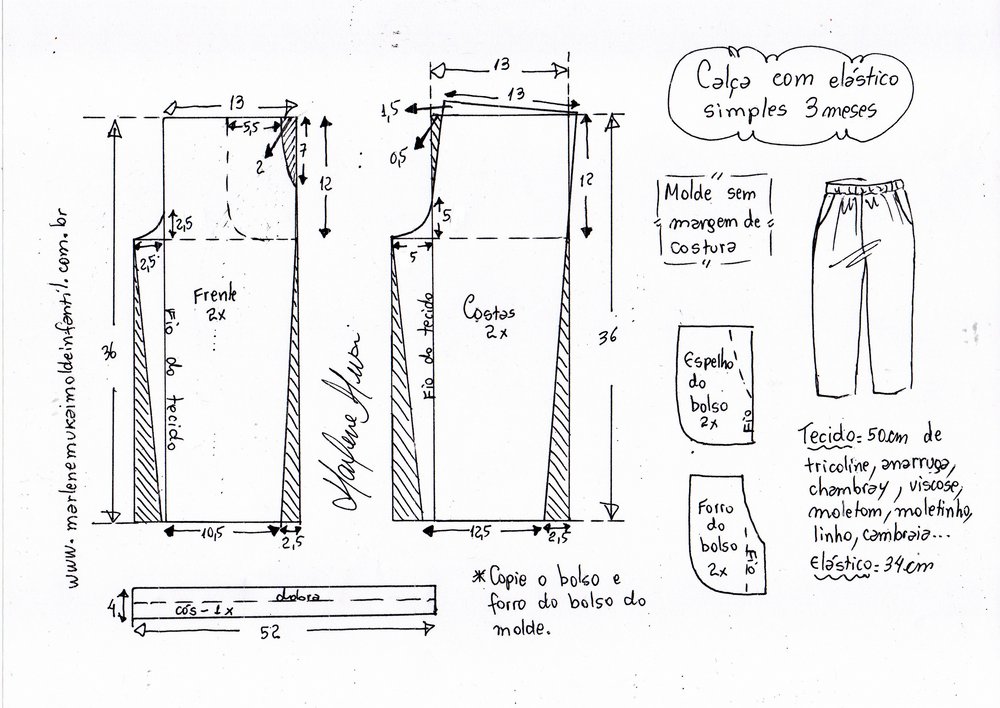 Calça com elástico
simples 3 meses
13
5,5
2
7
12
2,5
2,5
Frente
2x
Fio do tecido
36
10,5
2,5
www.marlenemukaimoldeinfantil.com.br
13
13
1,5
0,5
12
5
5
Costas
2x
Fio do tecido
36
12,5
2,5
Molde sem
margem de
costura
Espelho
do
bolso
2x
Fio
Forro
do
bolso
2x
Fio
Tecido: 50cm de
tricoline, anarruga,
chambray, viscose,
moletom, moletinho,
linho, cambraia...
Elástico: 34cm
4
dobra
cós - 1x
52
* Copie o bolso e
forro do bolso do
molde.